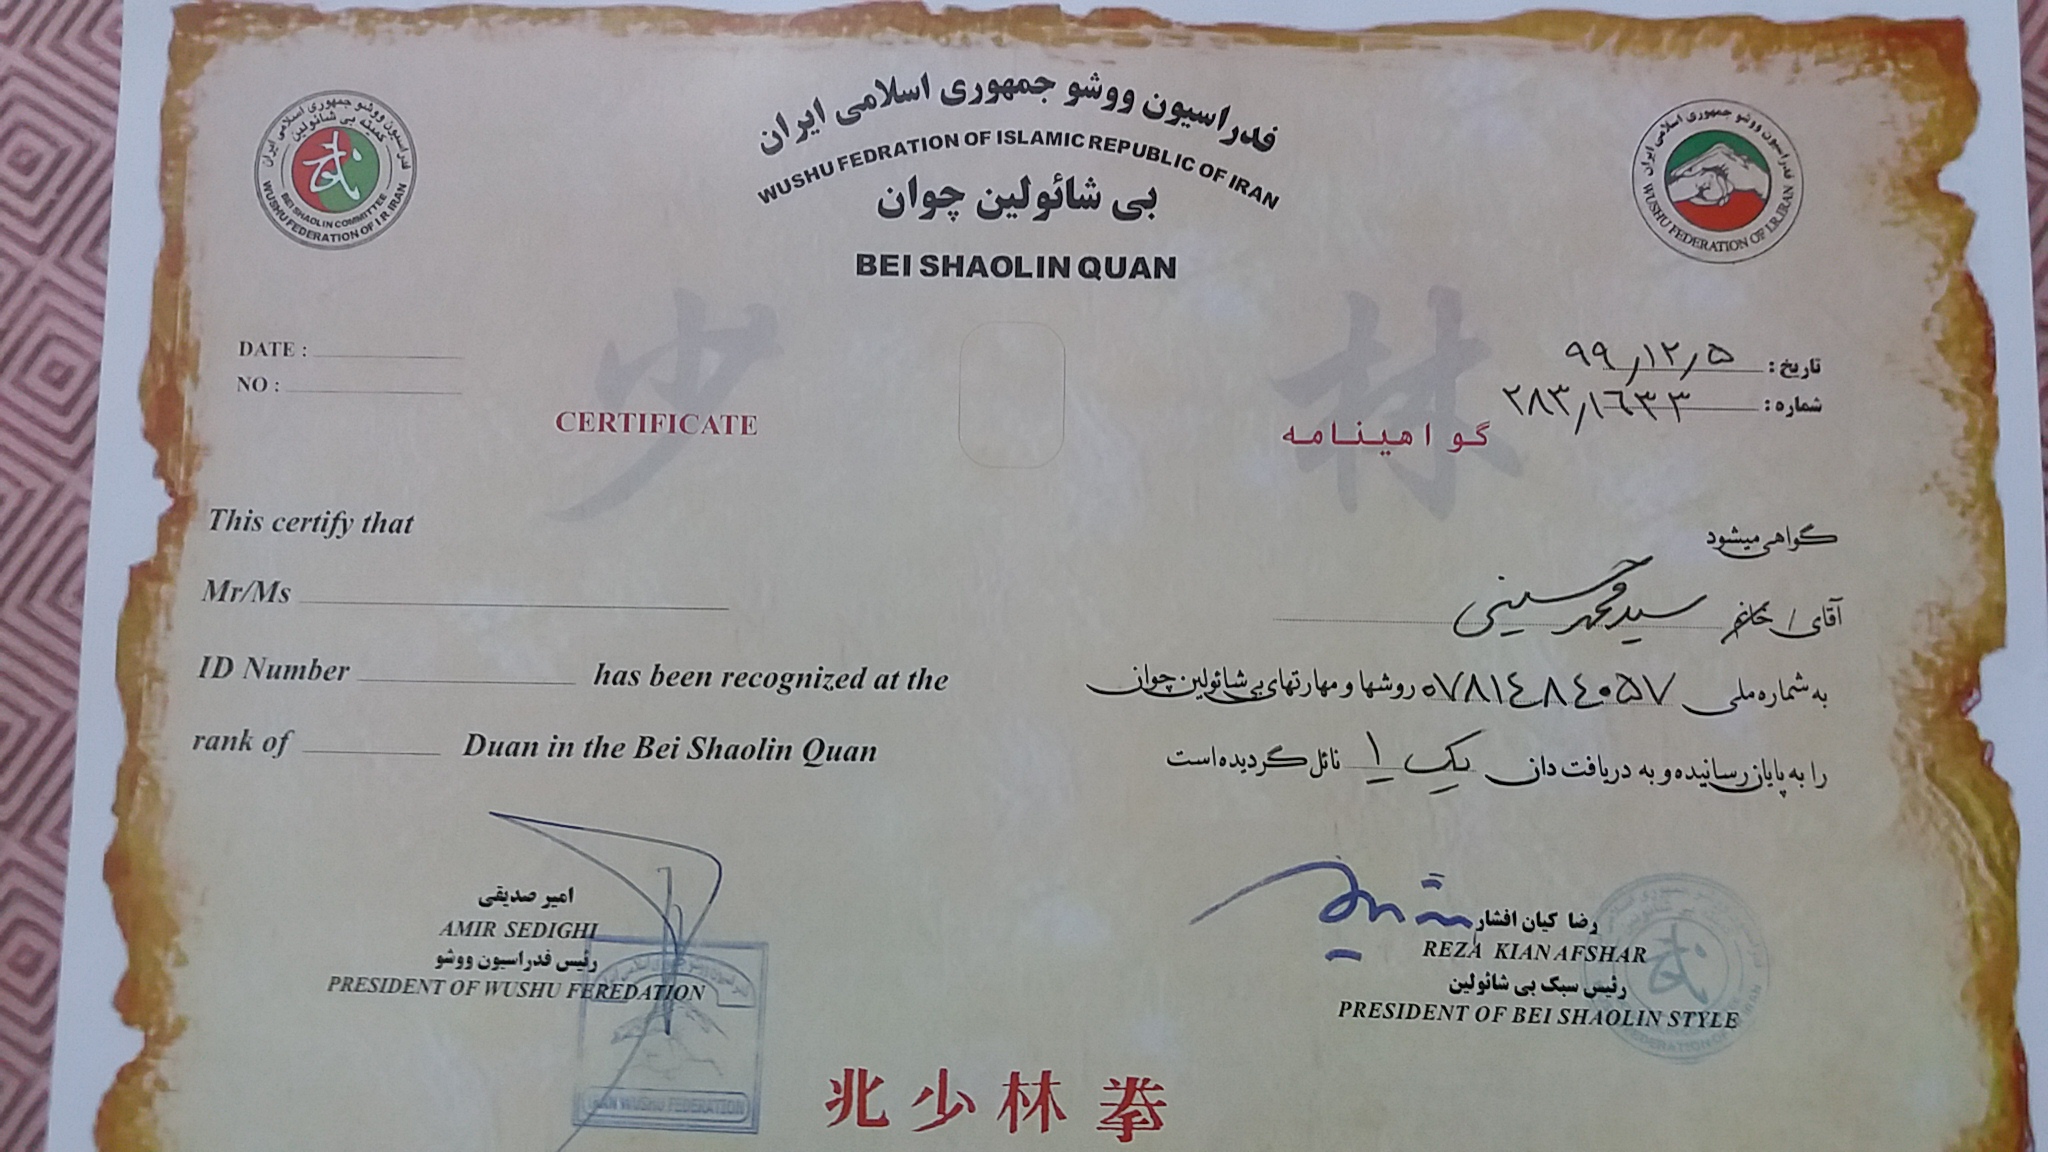 فدراسیون ووشو جمهوری اسلامی ایران
WUSHU FEDRATION OF ISLAMIC REPUBLIC OF IRAN
بی شائولین چوان
BEI SHAOLIN QUAN
فدراسیون ووشو جمهوری اسلامی ایران
کمیته بی شائولین
BEI SHAOLIN COMMITTEE
WUSHU FEDERATION OF I R IRAN
فدراسیون ووشو جمهوری اسلامی ایران
WUSHU FEDERATION OF I.R.IRAN
少 林
DATE :
NO :
CERTIFICATE
تاریخ : ۹۹/۱۲/۵
شماره : ۲۸۳/۱۶۳۳
گواهینامه
This certify that
Mr/Ms
ID Number has been recognized at the
rank of Duan in the Bei Shaolin Quan
گواهی میشود
آقای / خانم سید محمد حسینی
به شماره ملی ۰۷۸۱۴۸۴۰۵۷ روشها و مهارتهای بی شائولین چوان
را به پایان رسانیده و به دریافت دان یک ۱ نائل گردیده است
امیر صدیقی
AMIR SEDIGHI
رئیس فدراسیون ووشو
PRESIDENT OF WUSHU FEREDATION
IRAN WUSHU FEDERATION
رضا کیان افشار
REZA KIAN AFSHAR
رئیس سبک بی شائولین
PRESIDENT OF BEI SHAOLIN STYLE
北少林拳